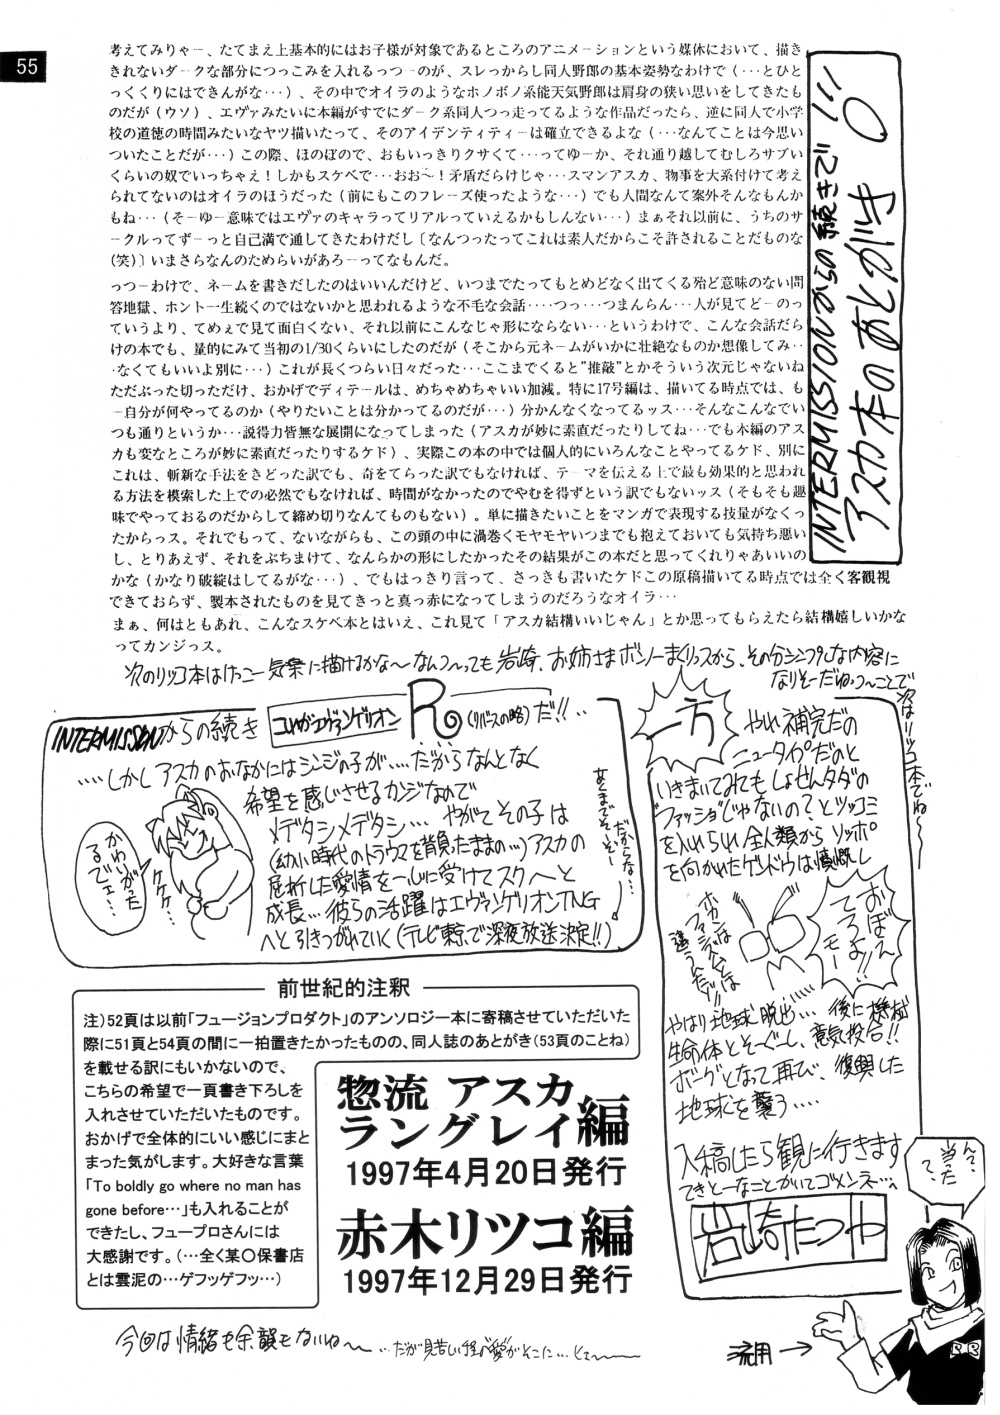 55
INTERMISSIONからの続きで!!!
アスカ本のあとがき
考えてみりゃー、たてまえ上基本的にはお子様が対象であるところのアニメーションという媒体において、描き
きれないダークな部分につっこみを入れるっつーのが、スレっからし同人野郎の基本姿勢なわけで(･･･とひと
っくくりにはできんがな･･･)、その中でオイラのようなホノボノ系能天気野郎は肩身の狭い思いをしてきたも
のだが(ウソ)、エヴァみたいに本編がすでにダーク系同人つっ走ってるような作品だったら、逆に同人で小学
校の道徳の時間みたいなヤツ描いたって、そのアイデンティティーは確立できるよな(･･･なんてことは今思い
ついたことだが･･･)この際、ほのぼので、おもいっきりクサくて･･･ってゆーか、それ通り越してむしろサブい
くらいの奴でいっちゃえ!しかもスケベで･･･おお～!矛盾だらけじゃ･･･スマンアスカ、物事を大系付けて考え
られてないのはオイラのほうだった(前にもこのフレーズ使ったような･･･)でも人間なんて案外そんなもんか
もね･･･(そーゆー意味ではエヴァのキャラってリアルっていえるかもしんない･･･)まぁそれ以前に、うちのサ
ークルってずーっと自己満で通してきたわけだし〔なんつったってこれは素人だからこそ許されることだものな
(笑)〕いまさらなんのためらいがあろーってなもんだ。
っつーわけで、ネームを書きだしたのはいいんだけど、いつまでたってもとめどなく出てくる殆ど意味のない問
答地獄、ホント一生続くのではないかと思われるような不毛な会話････つっ･･･つまんらん･･･人が見てどーのっ
ていうより、てめぇで見て面白くない、それ以前にこんなじゃ形にならない･･･というわけで、こんな会話だら
けの本でも、量的にみて当初の1/30くらいにしたのだが(そこから元ネームがいかに壮絶なものか想像してみ･･
･なくてもいいよ別に･･･)これが長くつらい日々だった･･･ここまでくると"推敲"とかそういう次元じゃないね
ただぶった切っただけ、おかげでディテールは、めちゃめちゃいい加減。特に17号編は、描いてる時点では、も
ー自分が何やってるのか(やりたいことは分かってるのだが･･･)分かんなくなってるッス･･･そんなこんなでい
つも通りというか･･･説得力皆無な展開になってしまった(アスカが妙に素直だったりしてね･･･でも本編のアス
カも変なところが妙に素直だったりするケド)、実際この本の中では個人的にいろんなことやってるケド、別に
これは、斬新な手法をきどった訳でも、奇をてらった訳でもなければ、テーマを伝える上で最も効果的と思われ
る方法を模索した上での必然でもなければ、時間がなかったのでやむを得ずという訳でもないッス(そもそも趣
味でやっておるのだからして締め切りなんてものもない)。単に描きたいことをマンガで表現する技量がなくっ
たからッス。それでもって、ないながらも、この頭の中に渦巻くモヤモヤいつまでも抱えておいても気持ち悪い
し、とりあえず、それをぶちまけて、なんらかの形にしたかったその結果がこの本だと思ってくれりゃあいいの
かな(かなり破綻はしてるがな･･･)、でもはっきり言って、さっきも書いたケドこの原稿描いてる時点では全く客観視
できておらず、製本されたものを見てきっと真っ赤になってしまうのだろうなオイラ･･･
まぁ、何はともあれ、こんなスケベ本とはいえ、これ見て「アスカ結構いいじゃん」とか思ってもらえたら結構嬉しいかな
ってカンジっス。
次のリツコ本はけっこー気楽に描けるかな～なんつ～っても岩崎、お姉さまボンノーまくりっスから、その分シンプルな内容に
なりそーだねっつ～ことで
次はリツコ本でね～
INTERMISSIONからの続き
R(リバースの略)だ!!･･
････しかしアスカのおなかにはシンジの子が････だからなんとなく
希望を感じさせるカンジなので
メデタシメデタシ･･･ やがてその子は
(幼い時代のトラウマを背負ったままの･･･)アスカの
屈折した愛情を一心に受けてスクスクと
成長･･･彼らの活躍はエヴァンゲリオンTNG
へと引きつがれていく(テレビ東京で深夜放送決定!!)
あくまでそーぞー
だからな･･･
かわいがった
るでェ･･･
ケケケ･･･
一方
やれ補完だの
ニュータイプだのと
いきまいてみてもしょせんタダの
ファッショじゃないの?とツッコミ
を入れられ全人類からソッポ
を向かれたゲンドウは憤慨し
おぼえ
てろよ!!
モー
ボカァンは
ファシズムとは
違うんだ!!
やはり地球脱出････ 後に機械
生命体とそーぐーし、意気投合!!
ボーグとなって再び、復興した
地球を襲う････
入稿したら観に行きます
てきとーなことかいてゴメンネ･･･
岩崎たつや
んで、
当った
て、
流用→
前世紀的注釈
注)52頁は以前「フュージョンプロダクト」のアンソロジー本に寄稿させていただいた
際に51頁と54頁の間に一拍置きたかったものの、同人誌のあとがき(53頁のことね)
を載せる訳にもいかないので、
こちらの希望で一頁書き下ろしを
入れさせていただいたものです。
おかげで全体的にいい感じにまと
まった気がします。大好きな言葉
「To boldly go where no man has
gone before…」も入れることが
できたし、フュープロさんには
大感謝です。(…全く某〇保書店
とは雲泥の…ゲフッゲフッ…)
惣流 アスカ
ラングレイ編
1997年4月20日発行
赤木リツコ編
1997年12月29日発行
今回は情緒も余韻もないね～
･･･だが見苦しい程の"愛"がそこに･･･